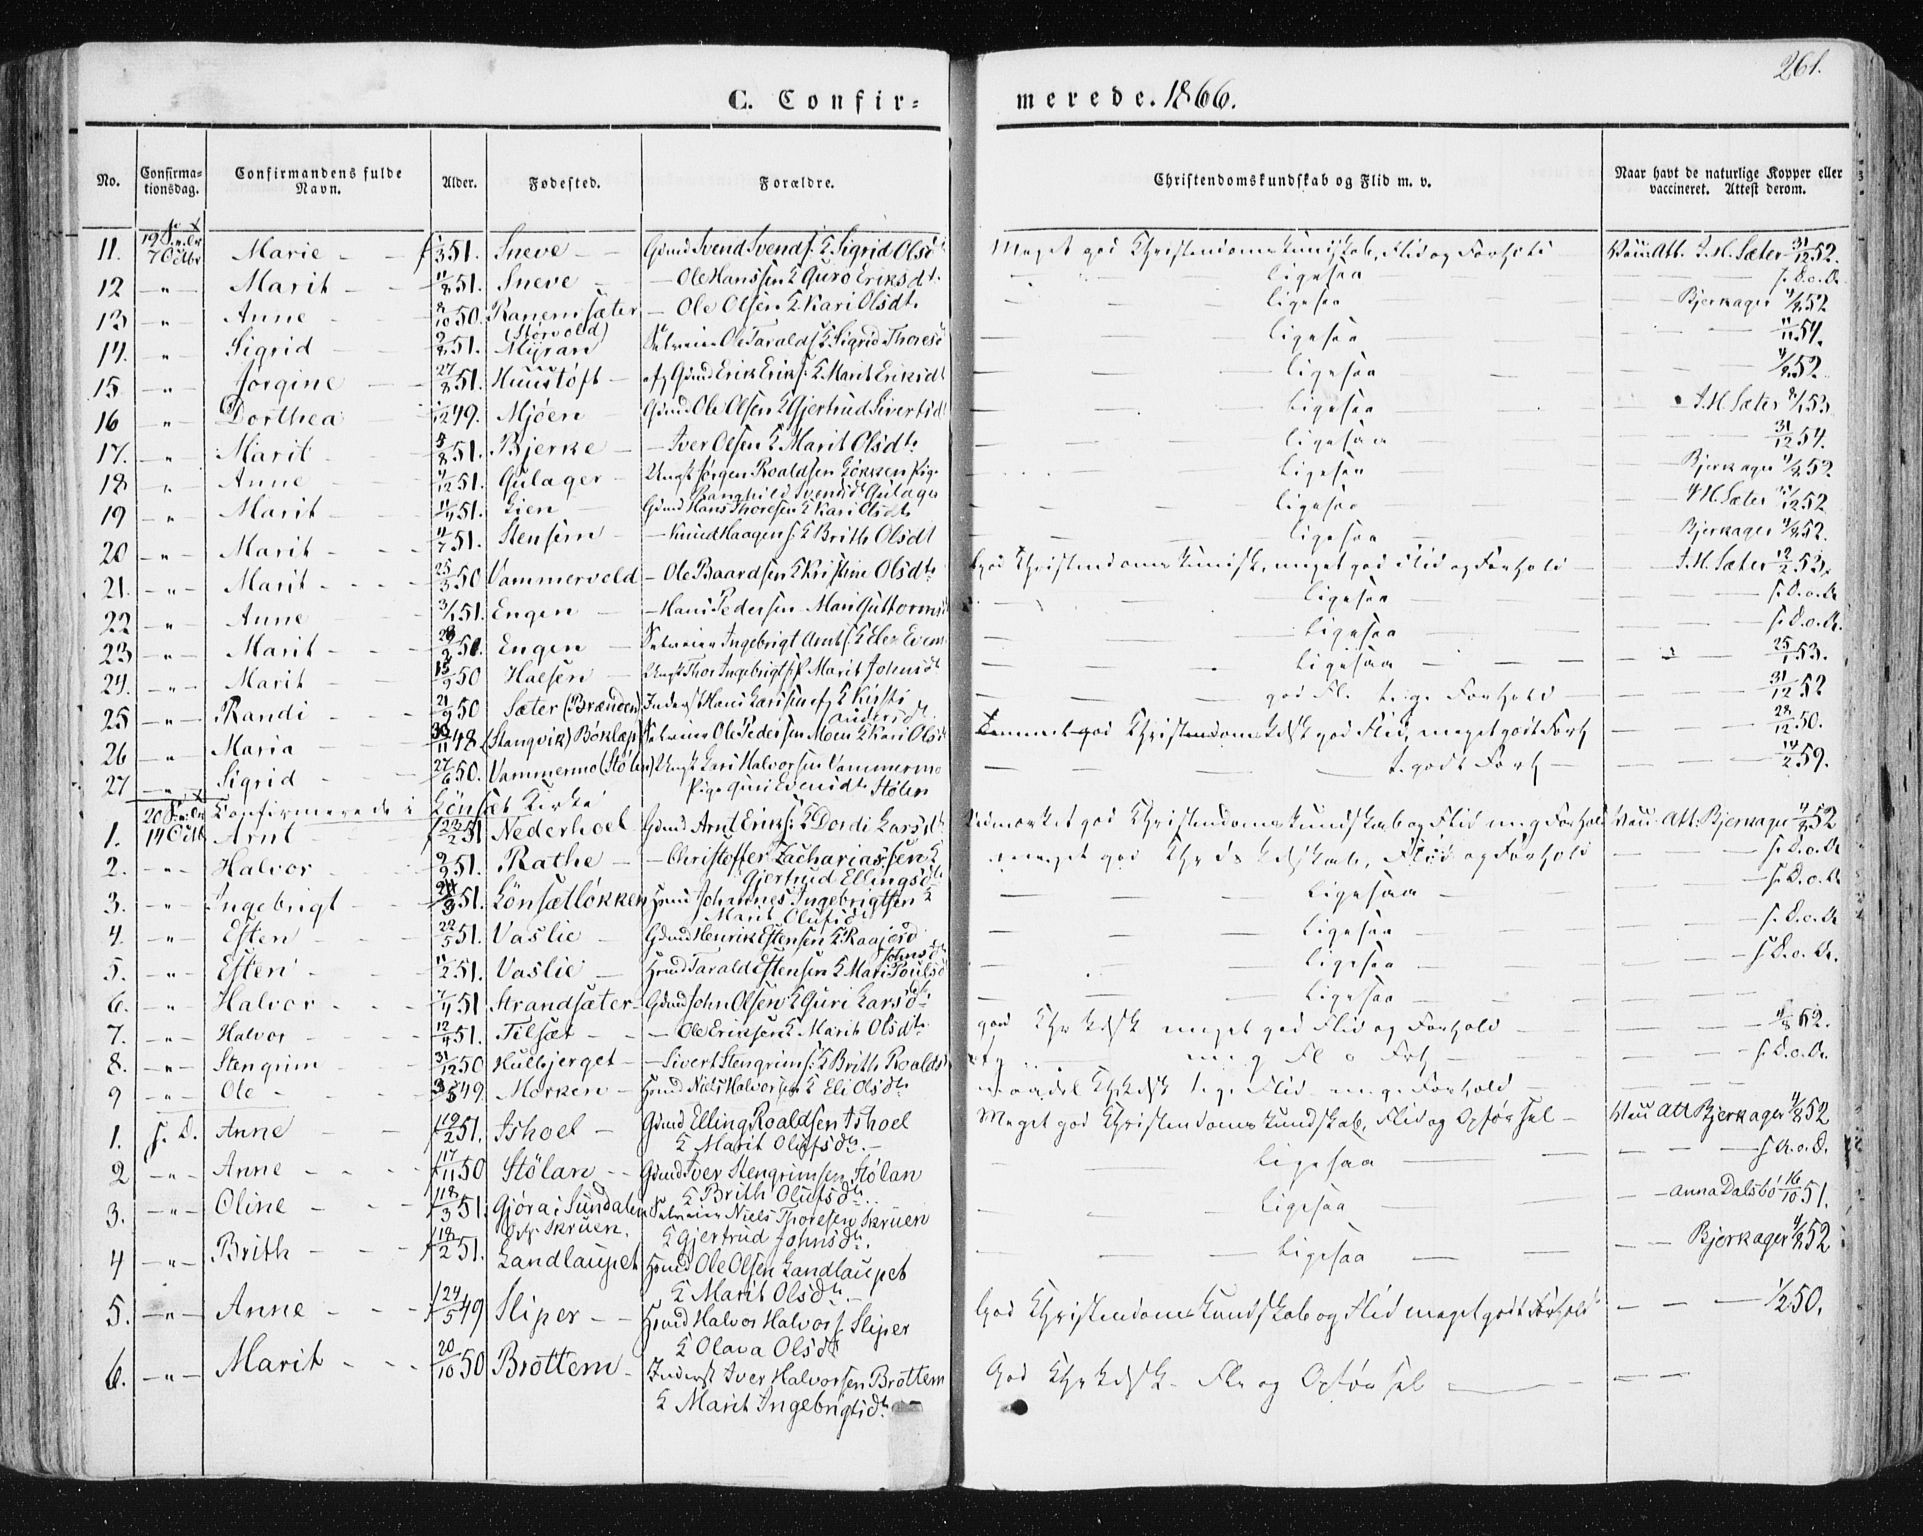 261.
C. Confirmerede. 1866.
No. Confirmationsdag. Confirmandens fulde Navn. Alder. Fødested. Forældre. Christendomskundskab og Flid m. v. Naar havt de naturlige Kopper eller vaccineret. Attest derom.
11. 7 Octbr Marie 51. Sneve Gmd Svend Svends. & Sigrid Olsd Meget god Christendomskundskab, Flid og Forhold Vacc. Att. J. M. Sæter 31/12 52.
12 -"- Marit 11/8 51. Sneve — Ole Hanssen & Guro Eriksdt. ligesaa s. D. o. A.
13 -"- Anne 8/10 50. Ranemsæter — Ole Olsen & Kari Olsdt. ligesaa Bjerkager 4/8 52
14. " Sigrid 51. (Storvold) Myran Selveier Ole Taralds. & Sigrid Thoresd ligesaa 54.
15 -"- Jørgine 27/8 51. Huustoft afg Gmd Erik Eriks. & Marit Eriksdt ligesaa 52.
16 " Dorthea 49. Mjøen Gmd Ole Olsen & Gjertrud Sivertsd ligesaa J. M. Sæter 53
17. -"- Marit 51. Bjerke — Iver Olsen & Marit Olsdt. ligesaa 31/12 54.
18 " Anne 51. Gulager Ungk Jørgen Roaldsen Løkken Pige Ranghild Svendsdt Gulager ligesaa Bjerkager 4/8 52.
19 -"- Marit 51. Lien Gmd Hans Thoresen & Kari Olsdt ligesaa J. M. Sæter 31/12 52
20 -"- Marit 11/7 51. Stensem — Knud Haagens. & Brith Olsdt ligesaa Bjerkager 4/8 52.
21. -"- Marit 25/3 50 Vammervold — Ole Baardsen & Kristine Olsdt. God Christendomskundsk, meget god Flid og Forhold J. M. Sæter 12/2 53.
22 -"- Anne 51. Engen — Hans Pedersen Mari Guttorms ligesaa s. D. o. A.
23 -"- Marit 50. Engen Selveier Ingebrigt Arnts. & Eli Evens ligesaa s. D. o. A.
24. -"- Marit 50 Halsen Ungk Thor Ingebrigts. Marit Johnsdt ligesaa 25/1 53.
25 -"- Randi 21/9 50 Sæter (Brænden) Inderst Hans Larssen & Kirsti Andersdt. god Fl. Forhold 31/12 52
26 -"- Maria 30/11 48 (Stangvik) Böklep Selveier Ole Pedersen Moen & Kari Olsdt god Christendomskdsk god Flid, meget godt Forh 28/12 50.
27 -"- Sigrid 27/6 50. Vammermo (Stølen) Ungk Lars Halvorsen Vammermo Pige Guri Evensdt Stølen t. godt Forh 14/2 59.
Confirmerede i Lønset Kirke
1. 14 Octb Arnt 51 Nederhoel Gmd Arnt Eriks. & Dordi Larsdt. Udmærket god Christendomskundskab og Flid meg Forhold Vacc. Att. Bjerkager 4/8 52
2. -"- Halvor 51. Rathe — Christoffer Zachariassen & Gjertrud Ellingsdt meget god Chrds kdskab, Flid og Forhold s. D. o. A
3. -"- Ingebrigt 51. Lønsætløkken Hmd Johannes Ingebrigtsen & Marit Olufsdt ligesaa s. D. o. A
4. -"- Esten 22/5 51. Vaslie Gmd Henrik Estensen & Raajerd Johnsdt ligesaa s. D. o. A
5. -"- Esten 11/2 51. Vaslie Hmd Tarald Estensen & Mari Poulsdt ligesaa s. D. o. A.
6. -"- Halvor 51. Strandsæter Gmd John Olsen & Guri Larsdt. ligesaa
7. -"- Halvor 12/4 51. Tilsæt — Ole Eriksen & Marit Olsdt. god Chr kdsk meget god Flid og Forhold 52.
8. -"- Stengrim 31/12 50 Hulbjerget — Sivert Stengrims. & Brith Roaldsd m. g. Fl o Forh s. D. o. A.
9 -"- Ole 49. Morken Hmd Niels Halvorsen & Eli Olsdt. Chr kdsk Flid meg Forhold
1. s. D. Anne 19/2 51. Ishoel Gmd Elling Roaldsen Ishoel & Marit Olufsdt. Meget god Christendomskundskab, Flid og Opførsel Vacc Att Bjerkager 4/8 52
2 -"- Anne 17/11 50 Stölan Gmd Iver Stengrimsen Stølan & Brith Olufsdt. ligesaa s. A. o. D.
3. -"- Oline 18/3 51. Gjøra i Sundalen Skruen. Selveier Niels Thoresen Skruen & Gjertrud Johnsdt. ligesaa Anna Dalsbö 16/10 51.
4 -"- Brith 18/2 51. Landlaupet Hmd Ole Olsen Landlaupet & Marit Olsdt. ligesaa Bjerkager 4/8 52
5. -"- Anne 24/5 49 Sliper Hmd Halvor Halvors Sliper & Olava Olsdt God Christendomskundskab og Flid meget godt Forhold 1/2 50.
6. -"- Marit 20/10 50 Brøttem Inderst Iver Halvorsen Brøttem & Marit Ingebrigtsdt. God Chr kdsk Fl og Opførsel